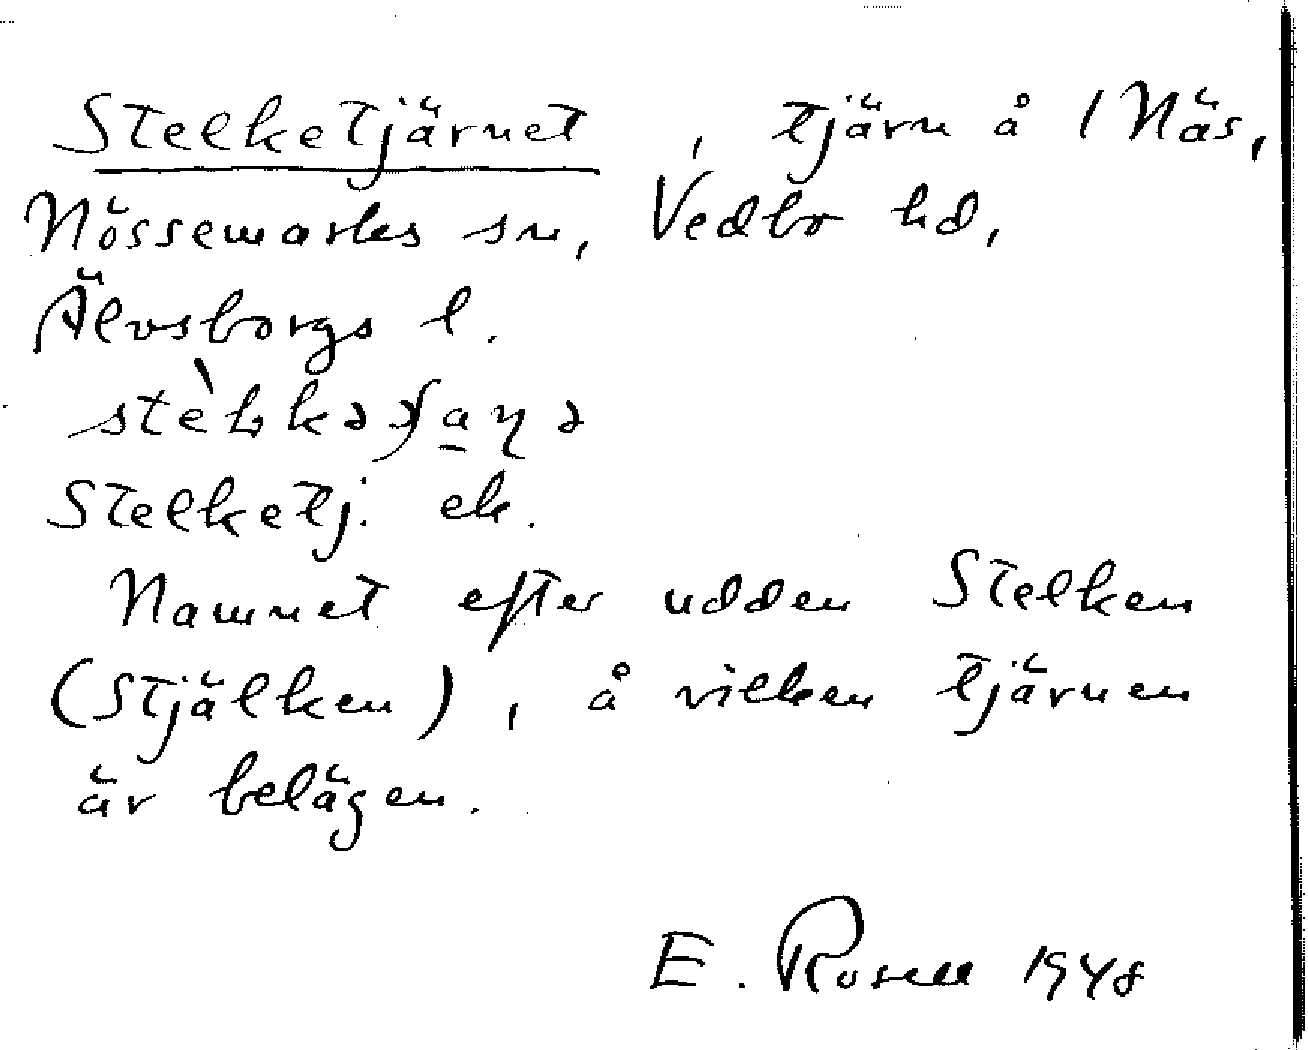 Stelketjärnet, tjärn å 1 Näs,
Nössemarks sn, Vedbo hd,
Älvsborgs l.
Stelketj. ek.
Namnet efter udden Stelken
(Stjälken), å vilken tjärnen
är belägen.
E. Rosell 1948